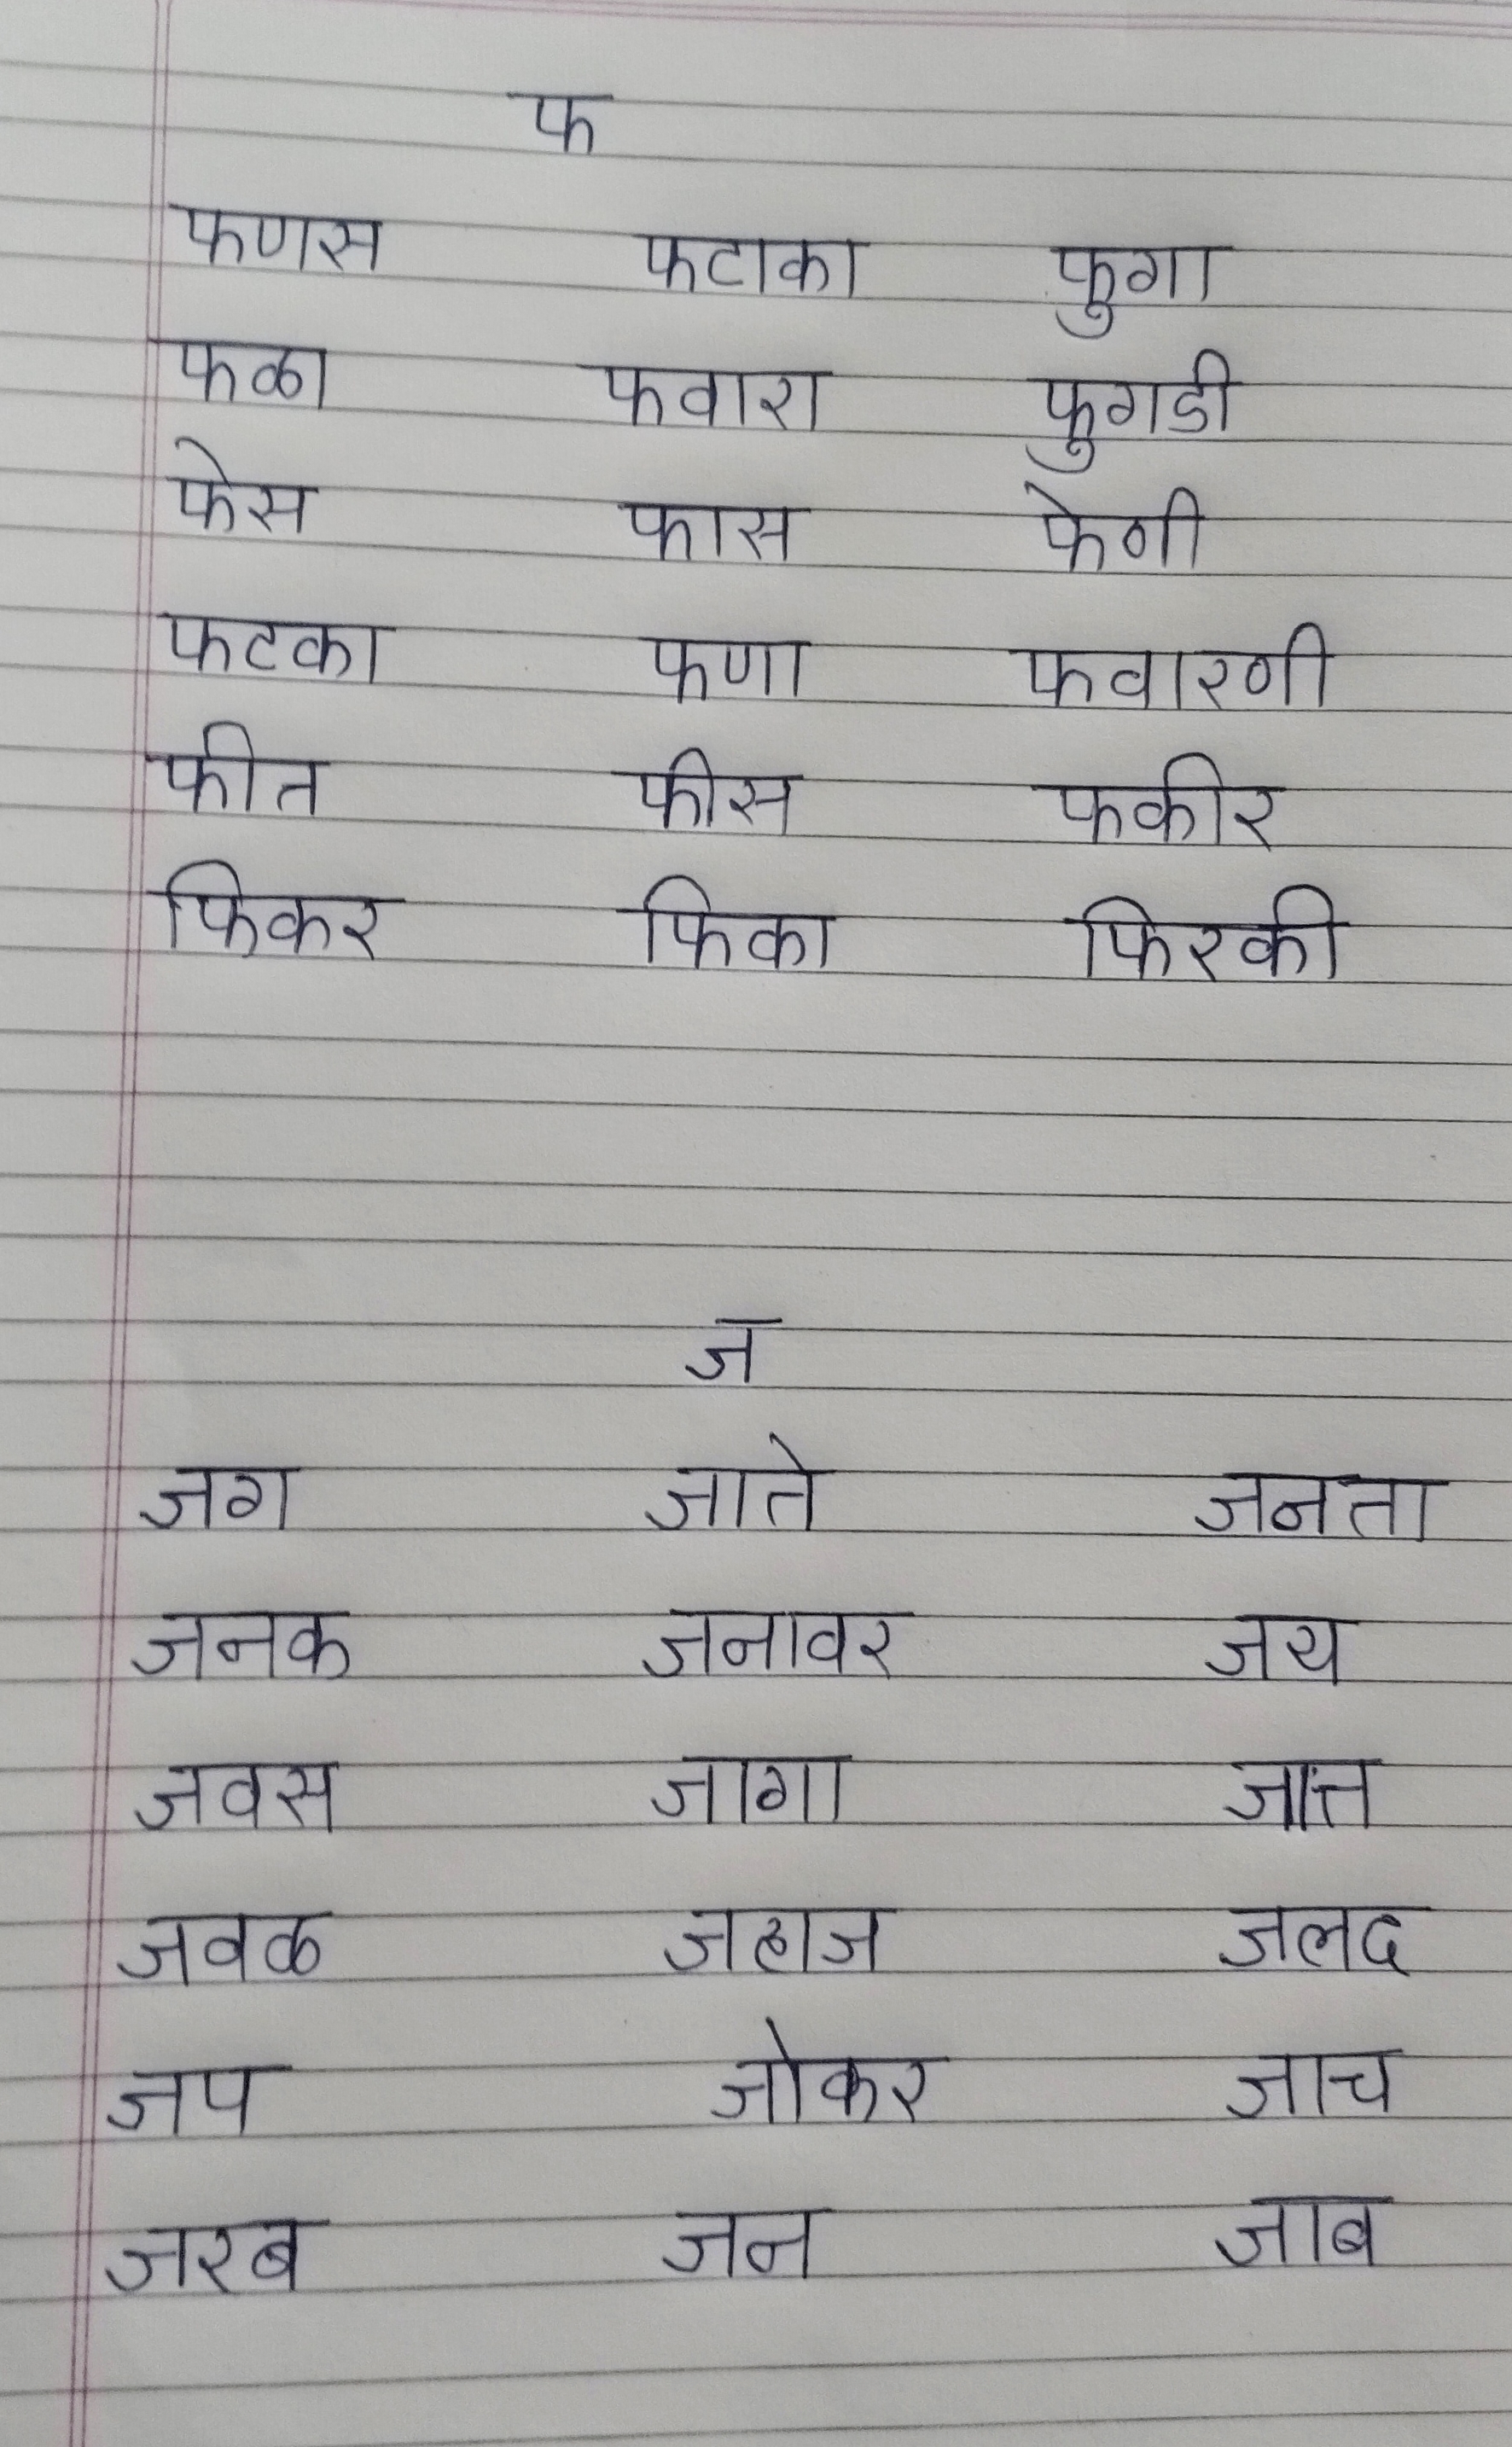 फ
फणस फटाका फुगा
फळा फवारा फुगडी
फेस फास फेणी
फटका फणा फवारणी
फीत फीस फकीर
फिकर फिका फिरकी
ज
जग जाते जनता
जनक जनावर जय
जवस जागा
जवळ जहाज जलद
जप जोकर जाच
जरब जन जाब